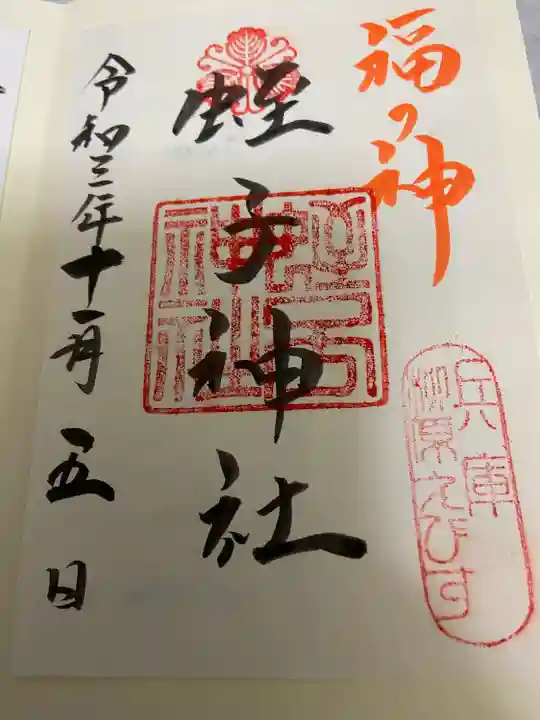 福の神
兵庫
柳原えびす
蛭子神社
令和三年十一月五日